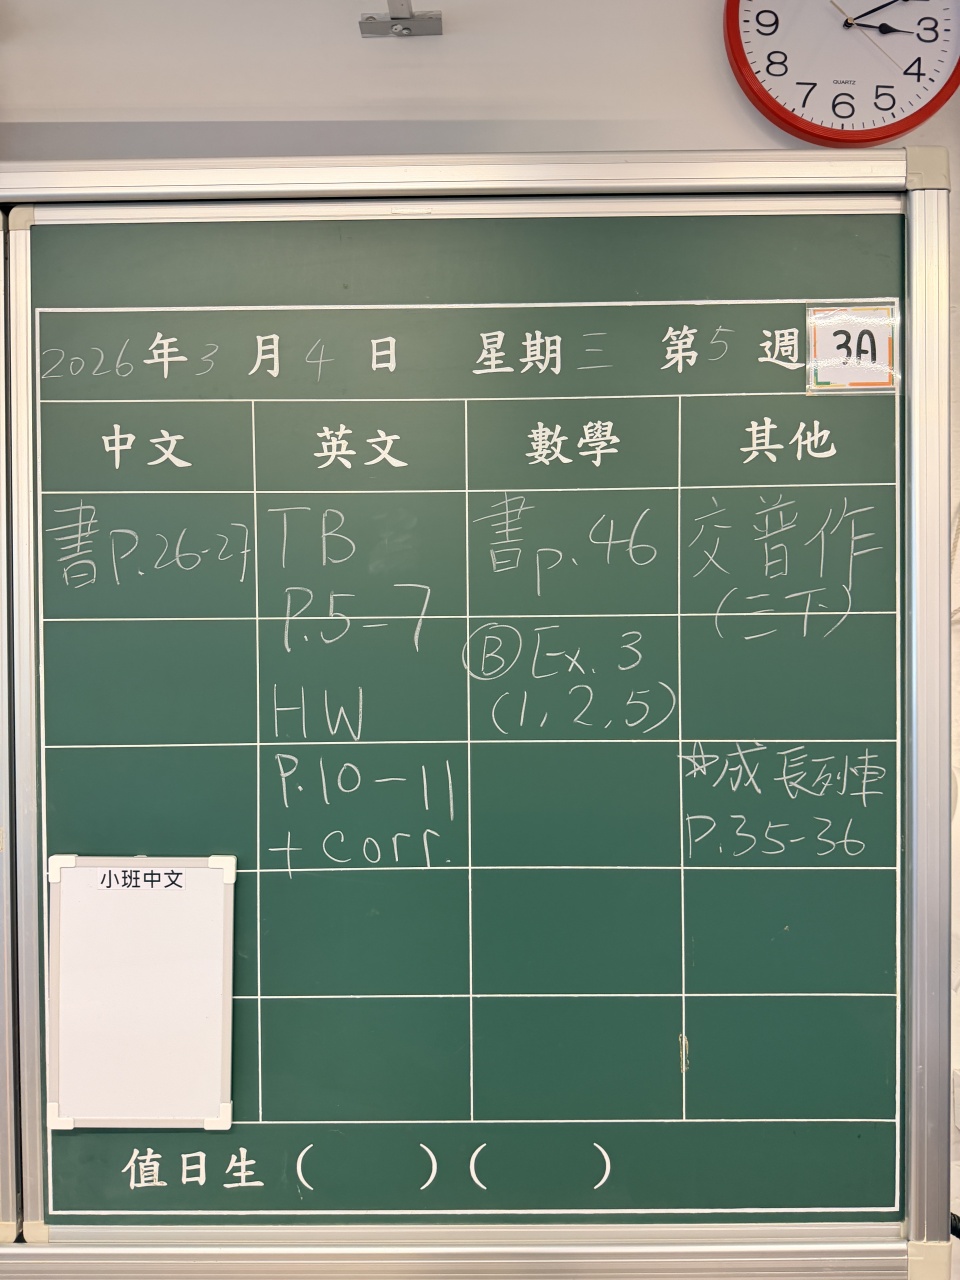 9
3
8
4
7
6
5
QUARTZ
2026年3月4日 星期三 第5週 3A
中文 英文 數學 其他
書P.26-27
TB
P.5-7
HW
P.10-11
+ corr.
書p.46
Ⓑ Ex. 3
(1, 2, 5)
交普作
(三下)
☆成長列車
P.35-36
小班中文
值日生 ( ) ( )